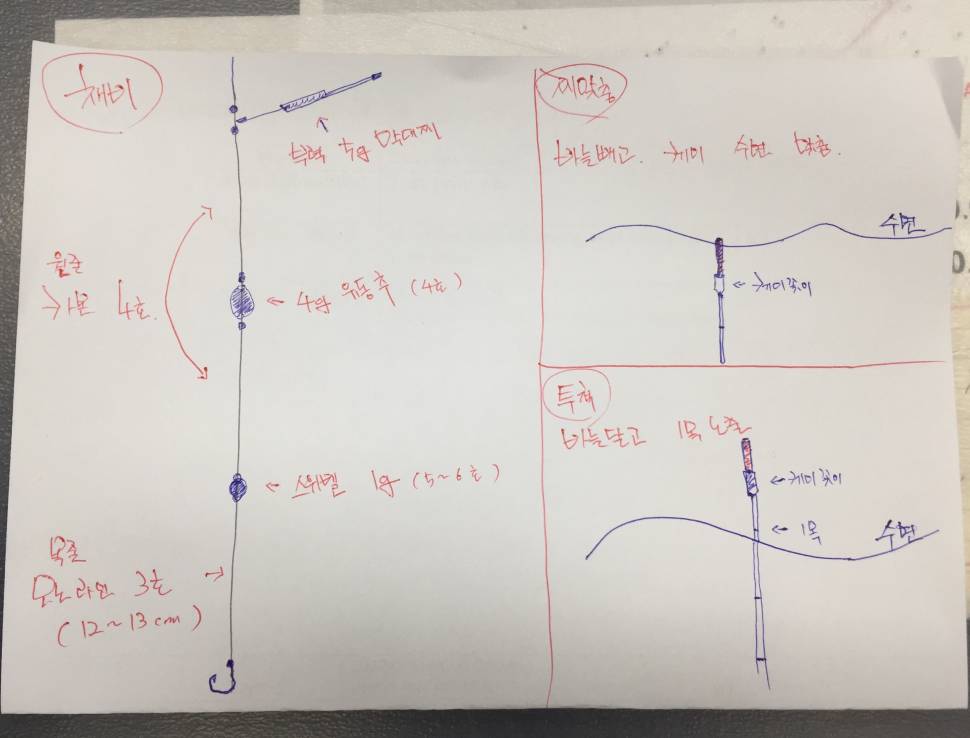 채비
부력 5g 막대찌
원줄
카본 4호.
← 4g 유동추 (4호)
← 스위벨 1g (5~6호)
목줄
모노라인 3호 →
(12~13cm)
찌맞춤
바늘빼고. 케미 수면 맞춤.
수면
← 케미꽂이
투척
바늘달고 1목 노출
← 케미꽂이
← 1목
수면